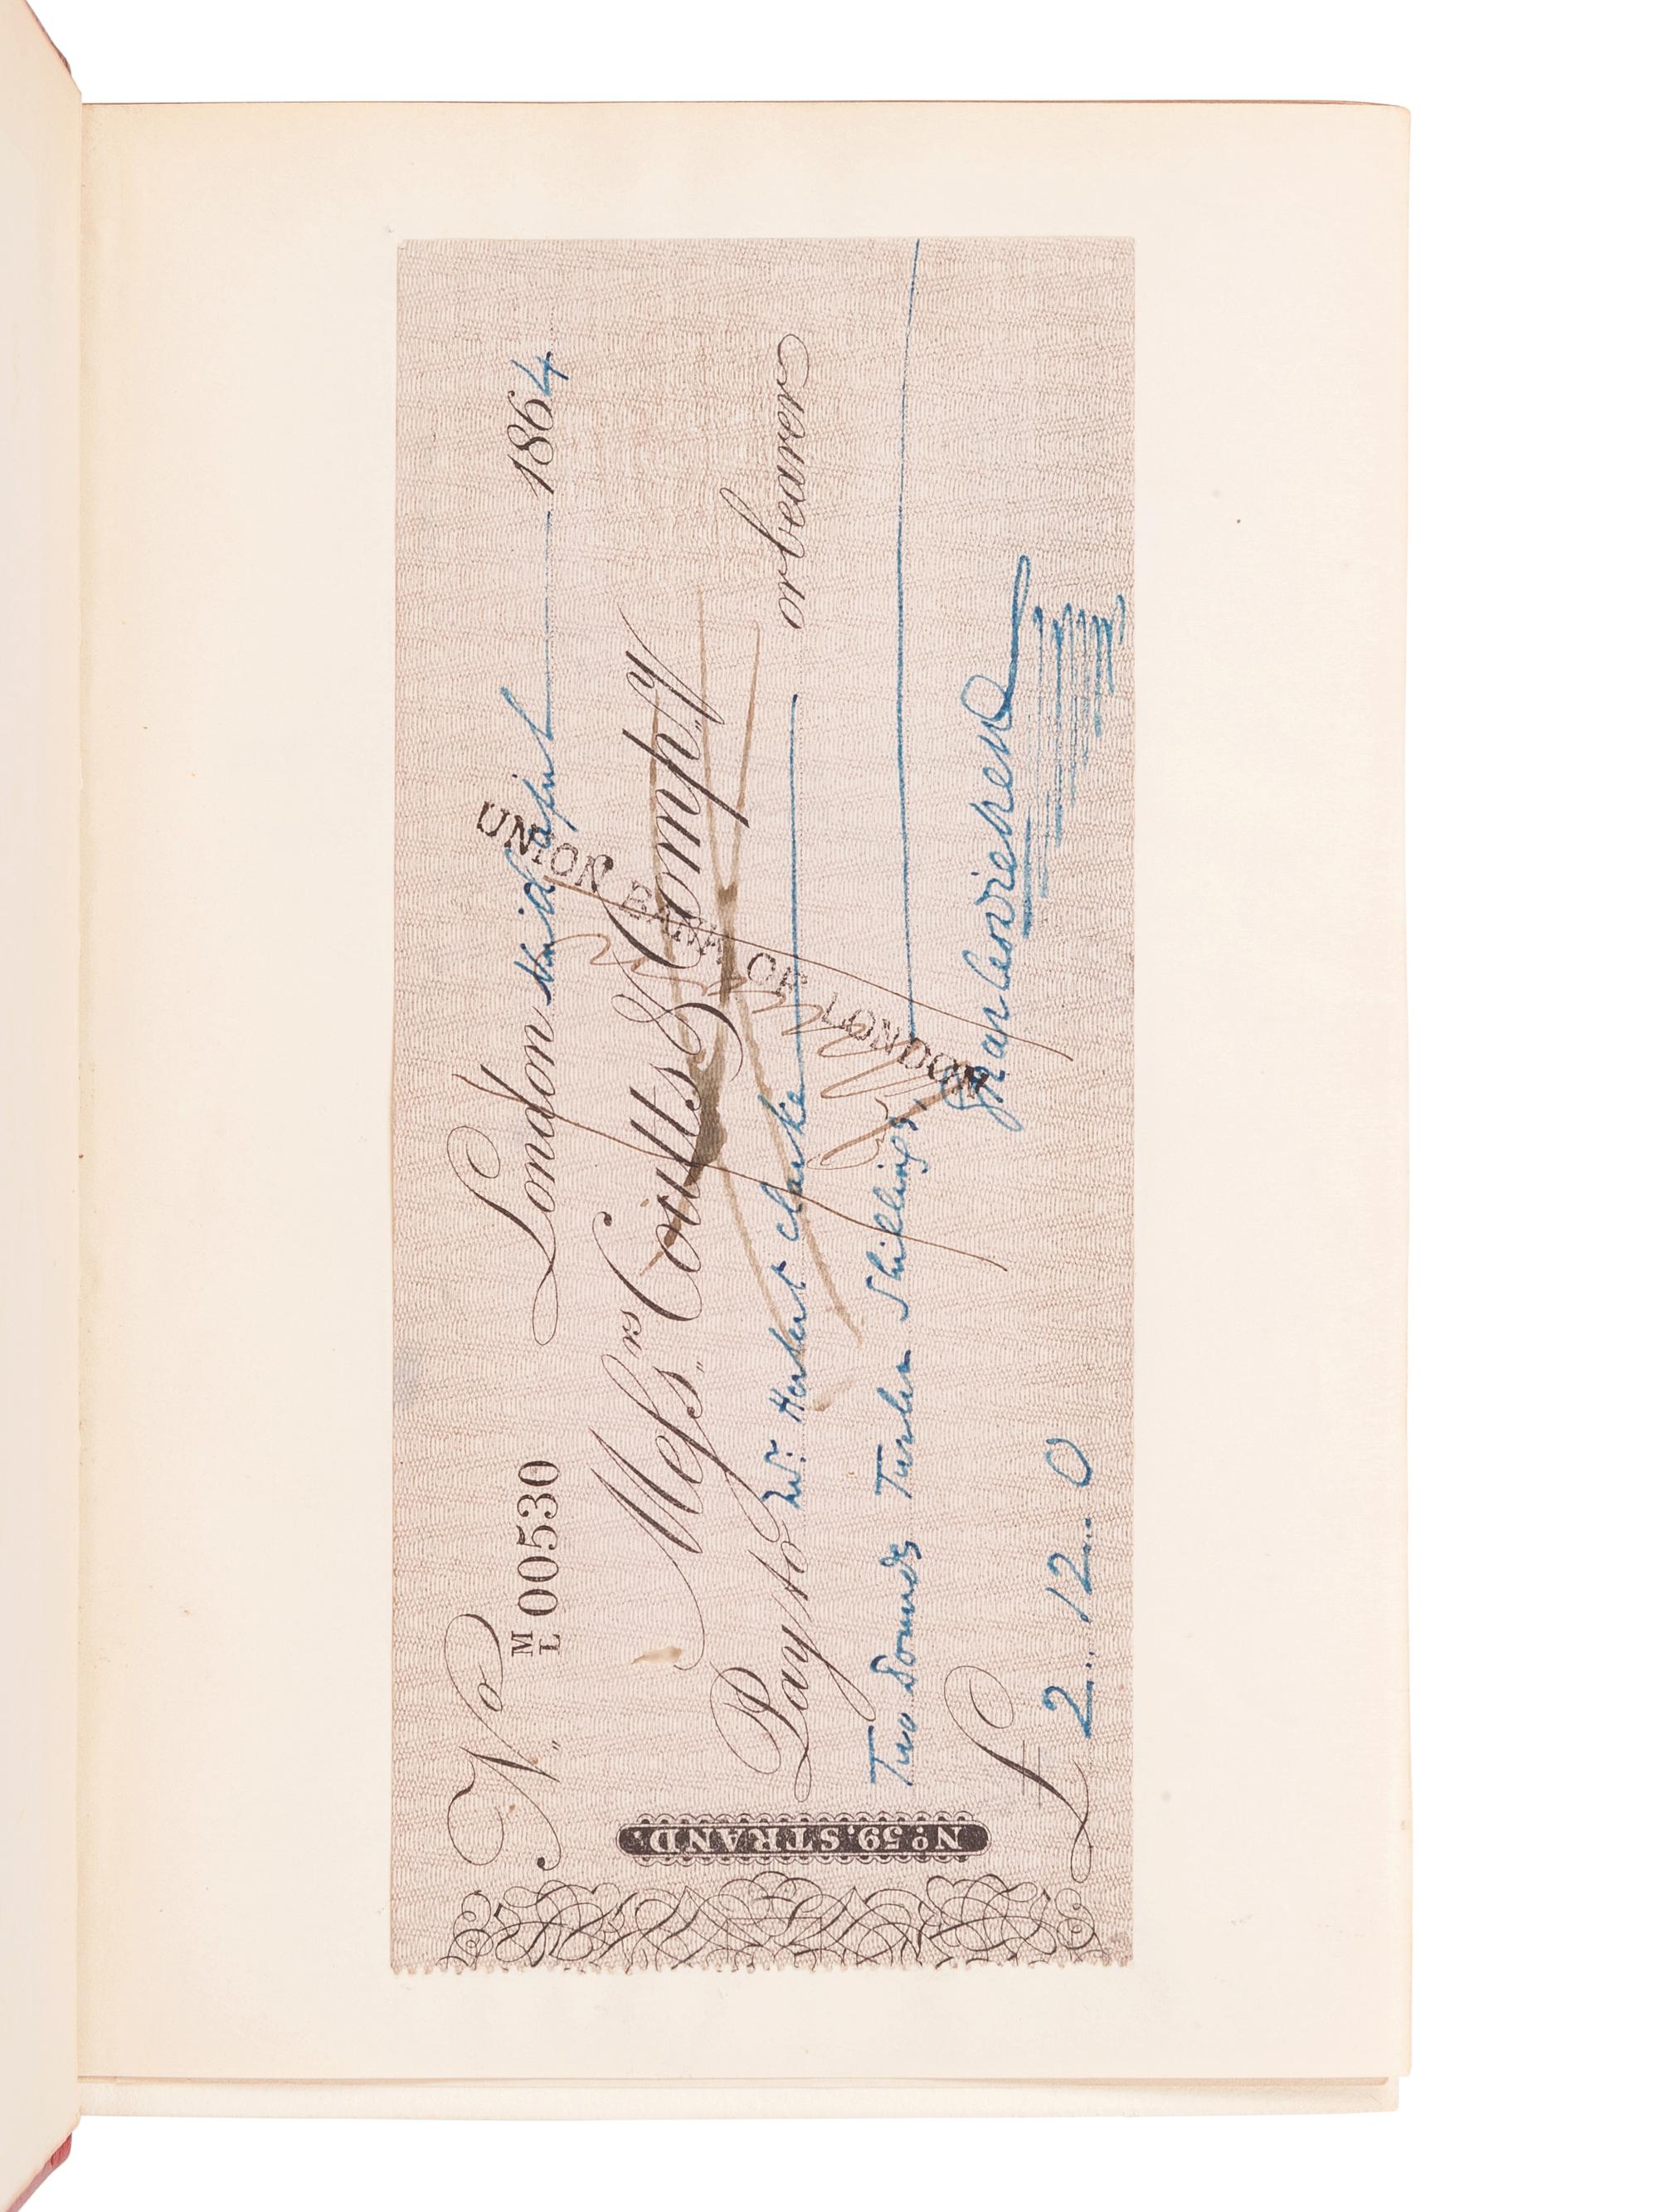 Nº M/L 00530 London april 1864
Mefs.rs Coutts & Comp.y
Pay to Mr. Herbert Clarke or bearer
Two Pounds Twelve Shillings,
£ 2..12..0 Charles Dickens
Nº 59, STRAND.
UNION BANK OF LONDON